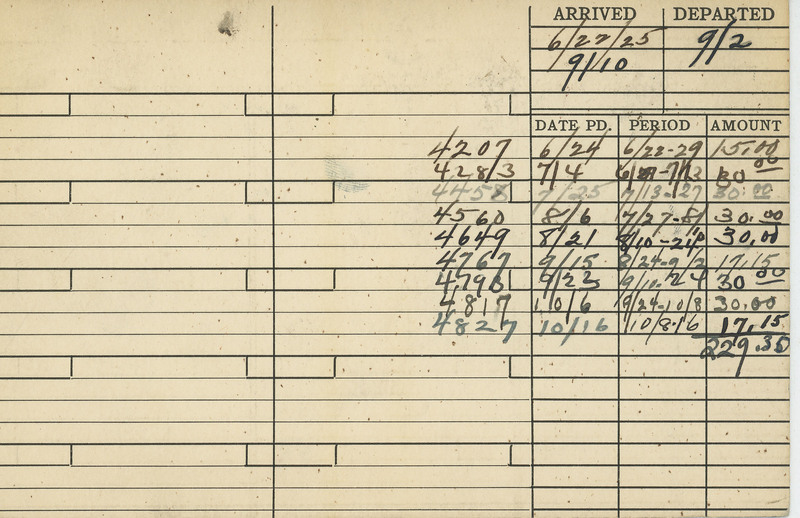 ARRIVED DEPARTED
6/22/25 9/2
9/10
DATE PD. PERIOD AMOUNT
4207 6/24 6/22-29 15.00
4283 7/4 30.00
4458 7/25 7/13-27 30.00
4560 8/6 7/27-8/ 30.00
4649 8/21 8/10-24 30.00
4767 9/15 8/24-9/2 17.15
4791 9/23 9/10-24 30.00
4817 10/6 9/24-10/8 30.00
4827 10/16 10/8-16 17.15
229.30